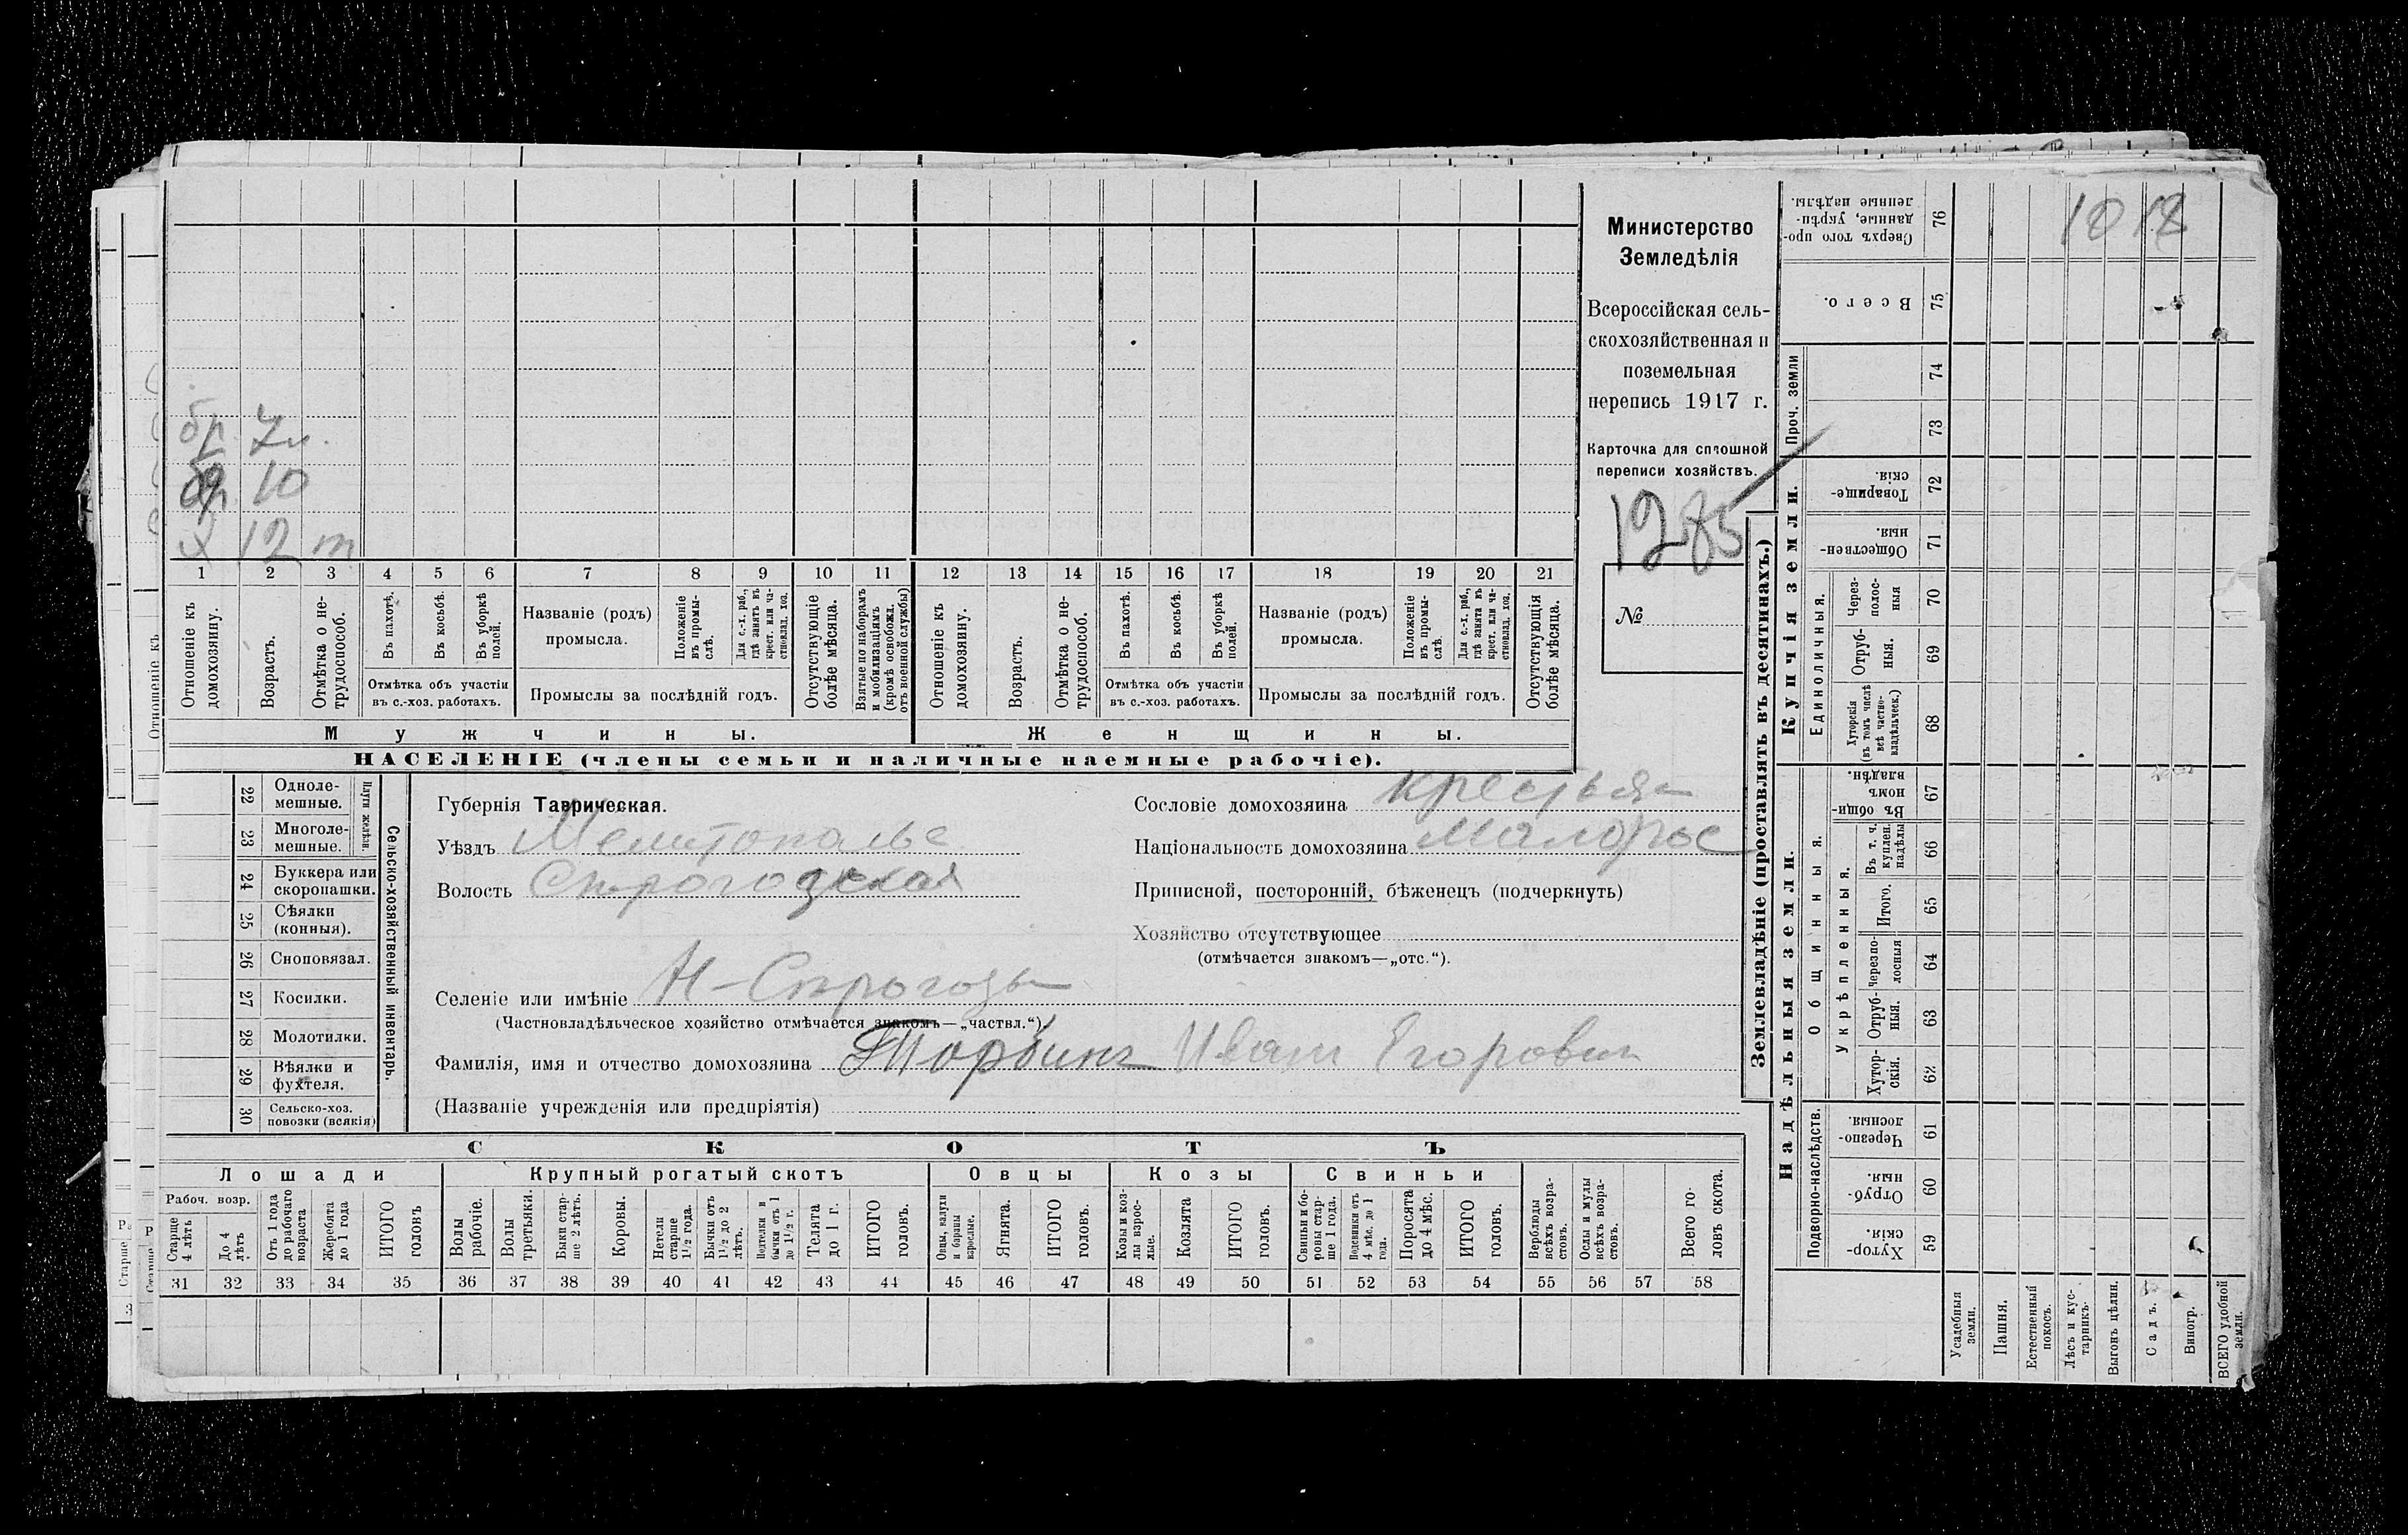 бр. 7 л.
бр. 10
х 12 т
1 2 3 4 5 6 7 8 9 10 11 12 13 14 15 16 17 18 19 20 21
Отношеніе къ домохозяину.
Возрастъ.
Отмѣтка о не-трудоспособ.
Въ пахотѣ.
Въ косьбѣ.
Въ уборкѣ полей.
Отмѣтка объ участіи въ с.-хоз. работахъ.
Названіе (родъ) промысла.
Положеніе въ промы-слѣ.
Для с.-х. раб., гдѣ занятъ въ крест. или ча-стновлад. хоз.
Промыслы за послѣдній годъ.
Отсутствующіе болѣе мѣсяца.
Взятые по наборамъ и мобилизаціямъ (кромѣ освобожд. отъ военной службы)
Отношеніе къ домохозяину.
Возрастъ.
Отмѣтка о не-трудоспособ.
Въ пахотѣ.
Въ косьбѣ.
Въ уборкѣ полей.
Отмѣтка объ участіи въ с.-хоз. работахъ.
Названіе (родъ) промысла.
Положеніе въ промы-слѣ.
Для с.-х. раб., гдѣ занята въ крест. или ча-стновлад. хоз.
Промыслы за послѣдній годъ.
Отсутствующія болѣе мѣсяца.
Мужчины.
Женщины.
НАСЕЛЕНІЕ (члены семьи и наличные наемные рабочіе).
Министерство
Земледѣлія
Всероссійская сель-
скохозяйственная и
поземельная
перепись 1917 г.
Карточка для сплошной
переписи хозяйствъ.
1285
№
22 Одноле-мешные.
23 Многоле-мешные.
Плуги желѣзн.
24 Буккера или скоропашки.
25 Сѣялки (конныя).
26 Сноповязал.
27 Косилки.
28 Молотилки.
29 Вѣялки и фухтеля.
30 Сельско-хоз. повозки (всякія)
Сельско-хозяйственный инвентарь.
Губернія Таврическая.
Уѣздъ Мелитопольс
Волость
Сословіе домохозяина крестьян
Національность домохозяина Малорос
Приписной, посторонній, бѣженецъ (подчеркнуть)
Хозяйство отсутствующее
(отмѣчается знакомъ—„отс.“).
Селеніе или имѣніе
(Частновладѣльческое хозяйство отмѣчается знакомъ—„частвл.“)
Фамилія, имя и отчество домохозяина Торбинъ Иван Егорович
(Названіе учрежденія или предпріятія)
СКОТЪ
Лошади
Крупный рогатый скотъ
Овцы
Козы
Свиньи
Рабоч. возр.
Старше 4 лѣтъ
До 4 лѣтъ
Отъ 1 года до рабочаго возраста
Жеребята до 1 года
ИТОГО головъ
Волы рабочіе.
Волы третьяки.
Быки стар-ше 2 лѣтъ.
Коровы.
Нетели старше 1½ года.
Бычки отъ 1½ до 2 лѣтъ.
Подтелки и бычки отъ 1 до 1½ г.
Телята до 1 г.
ИТОГО головъ.
Овцы, валухи и бараны взрослые.
Ягнята.
ИТОГО головъ.
Козы и коз-лы взрос-лые.
Козлята
ИТОГО головъ.
Свиньи и бо-ровы стар-ше 1 года.
Подсвинки отъ 4 мѣс. до 1 года.
Поросята до 4 мѣс.
ИТОГО головъ.
Верблюды всѣхъ возра-стовъ.
Ослы и мулы всѣхъ возра-стовъ.
Всего го-ловъ скота.
31 32 33 34 35 36 37 38 39 40 41 42 43 44 45 46 47 48 49 50 51 52 53 54 55 56 57 58
Землевладѣніе (проставлять въ десятинахъ.)
Купчія земли.
Надѣльныя земли.
Проч. земли
Единоличныя.
Общинныя.
Укрѣпленныя.
Подворно-наслѣдств.
Сверхъ того про-данные, укрѣп-ленные надѣлы. 76
Всего. 75
74
73
Товарище-скія. 72
Обществен-ныя. 71
Через-полос-ныя 70
Отруб-ныя. 69
Хуторскія (въ томъ числѣ всѣ частно-владѣльческ.) 68
Въ общи-номъ владѣн. 67
Въ т. ч. куплен. надѣлы 66
Итого. 65
Черезпо-лосныя 64
Отруб-ныя. 63
Хутор-скія. 62
Черезпо-лосныя. 61
Отруб-ныя. 60
Хутор-скія. 59
Усадебныя земли.
Пашня.
Естественный покосъ.
Лѣсъ и кус-тарникъ.
Выгонъ цѣлин.
Садъ.
Виногр.
ВСЕГО удобной земли.
Отношеніе къ